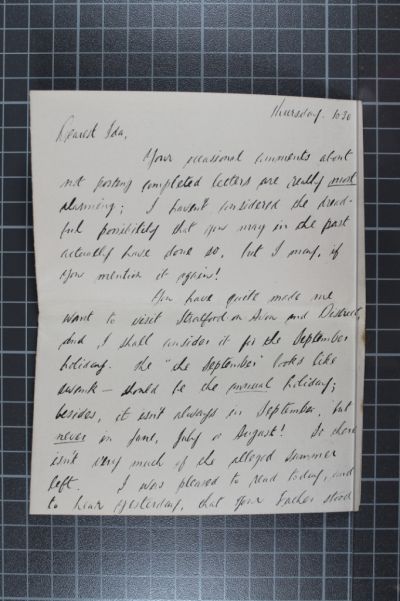 Thursday. 10.30
Dearest Ida,
Your occasional comments about
not posting completed letters are really most
alarming; I haven't considered the dread-
ful possibility that you may in the past
actually have done so, but I may, if
you mention it again!
You have quite made me
want to visit Stratford on Avon and District,
and I shall consider it for the September
holiday. The "the September" looks like
swank – should be the annual holiday;
besides, it isn't always in September, but
never in June, July or August! So there
isn't very much of the alleged summer
left. I was pleased to read today, and
to hear yesterday, that your Father stood